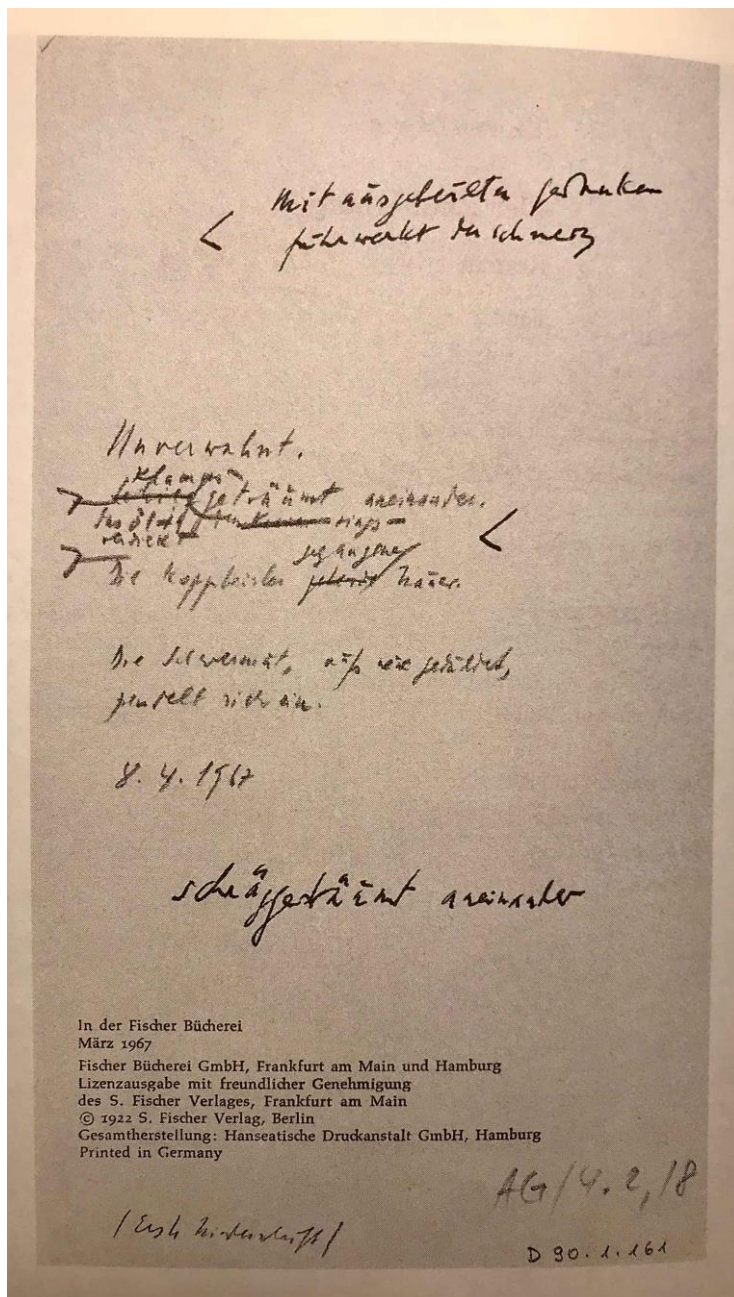 Mit ausgebeulten gedanken
fuhrwerkt der schmerz
Unverwahrt.
geträumt aneinander.
Das Öl rings-
verdickt
gegangene
Die koppheister Trauer.
Die Schwermut, aufs neue geduldet,
pendelt sich ein.
8. 4. 1967
schräggeträumt aneinander
In der Fischer Bücherei
März 1967
Fischer Bücherei GmbH, Frankfurt am Main und Hamburg
Lizenzausgabe mit freundlicher Genehmigung
des S. Fischer Verlages, Frankfurt am Main
© 1922 S. Fischer Verlag, Berlin
Gesamtherstellung: Hanseatische Druckanstalt GmbH, Hamburg
Printed in Germany
AG/4.2,18
/Erste Niederschrift/
D 90.1.161